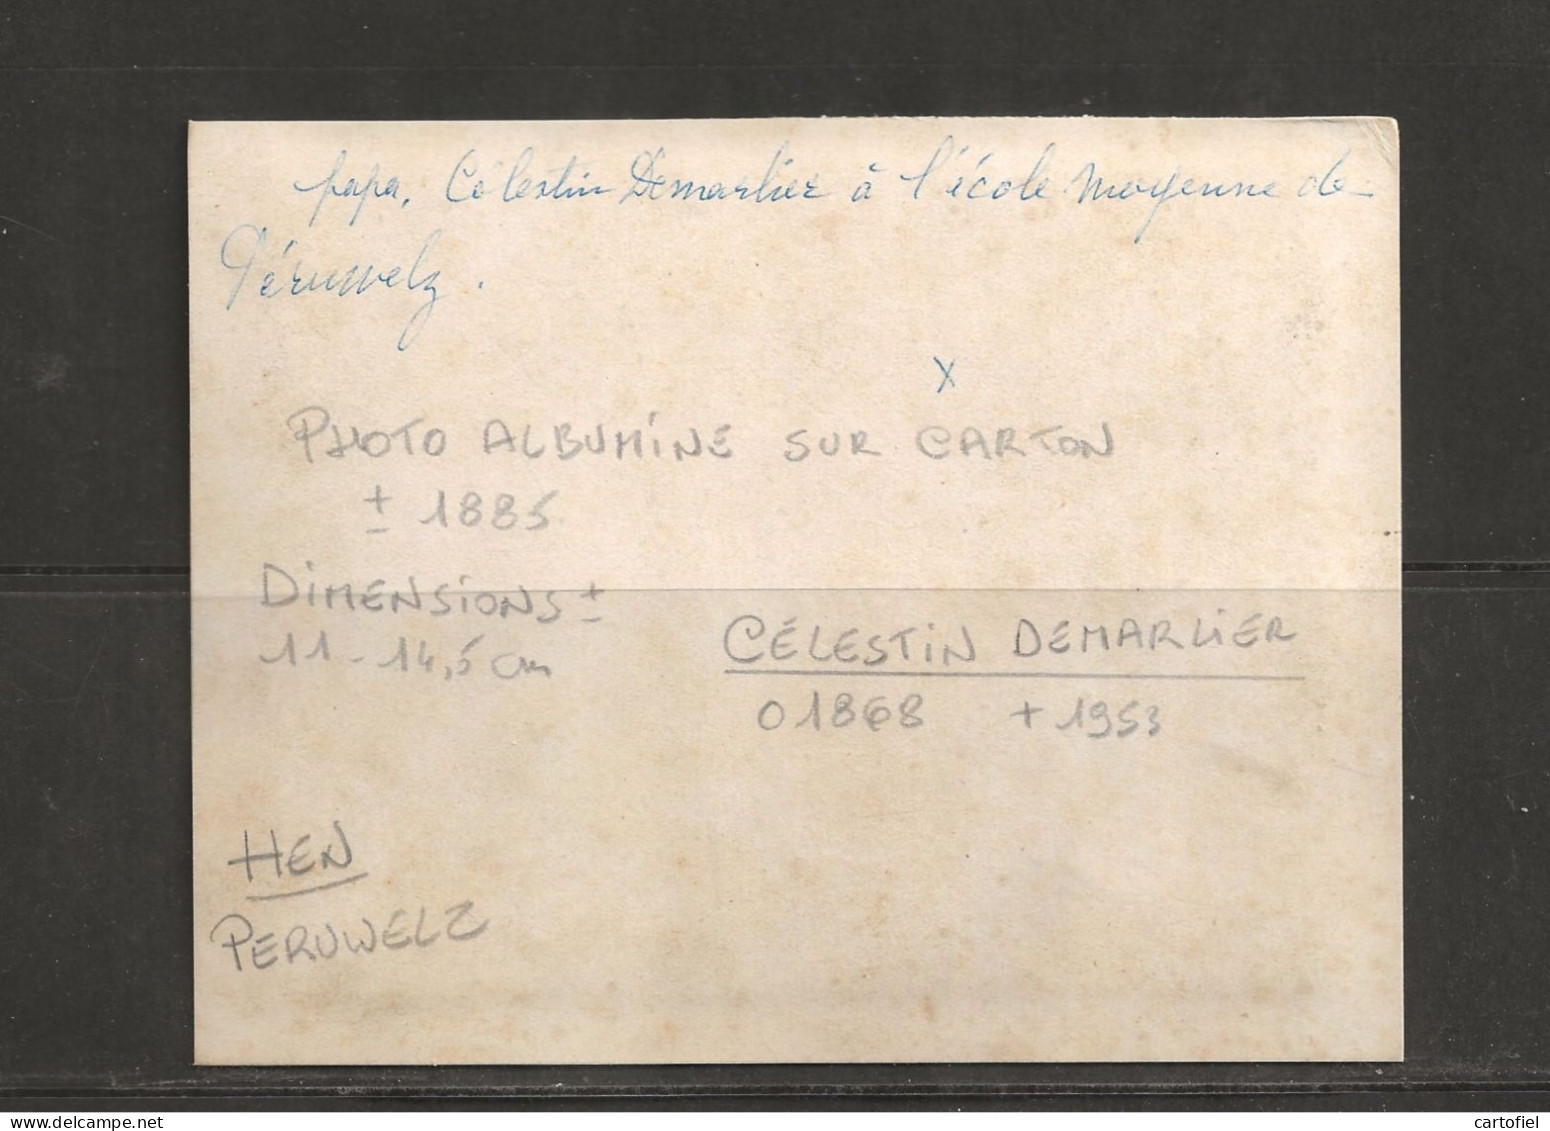 papa, Célestin Demarlier à l'école moyenne de
Péruwelz.
x
PHOTO ALBUMINE SUR CARTON
± 1885
DIMENSIONS ±
11 - 14,5 cm
CÉLESTIN DEMARLIER
o 1868 + 1953
HEN
PERUWELZ
www.delcampe.net
cartofiel